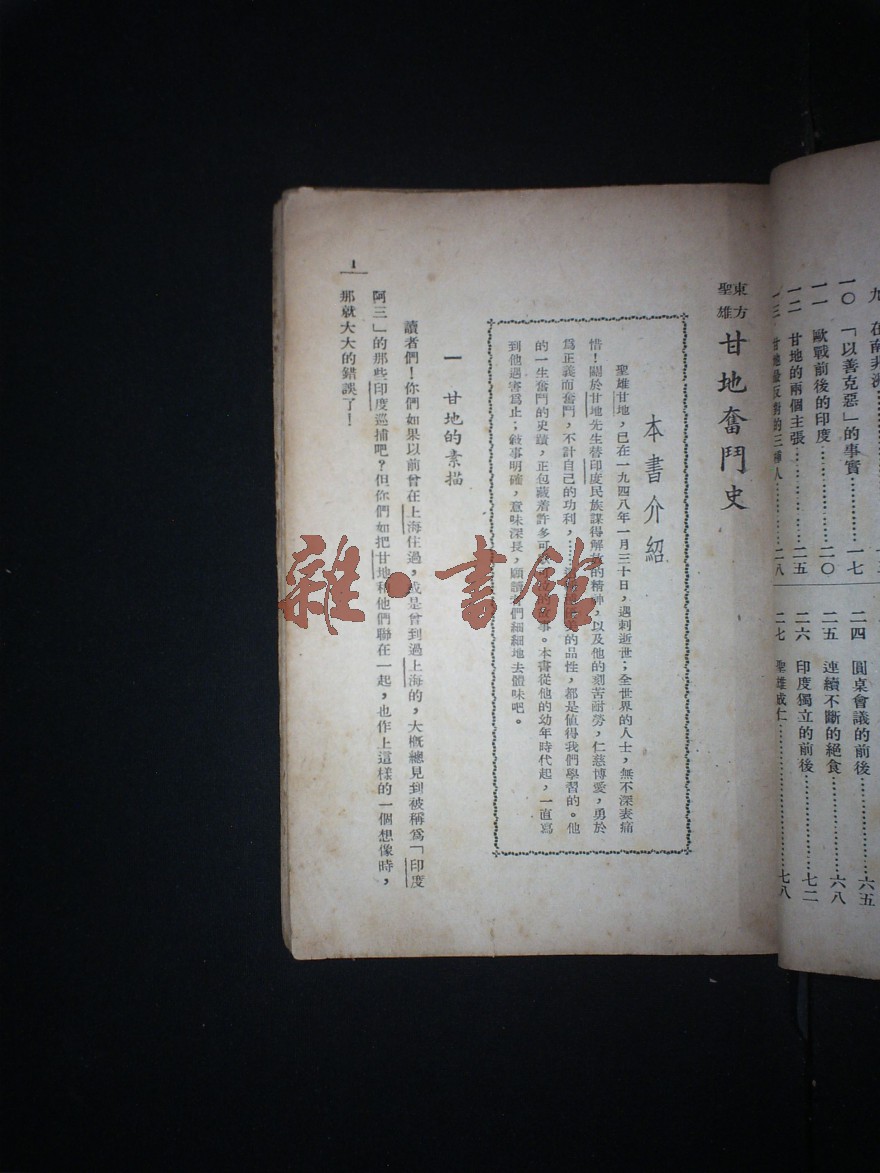 九 在南非洲
一〇 「以善克惡」的事實…………一七
一一 歐戰前後的印度…………二〇
一二 甘地的兩個主張…………二五
一三 甘地最反對的三種人…………二八
二四 圓桌會議的前後…………六五
二五 連續不斷的絕食…………六八
二六 印度獨立的前後…………七二
二七 聖雄成仁…………七八
東方聖雄 甘地奮鬥史
本書介紹
聖雄甘地,已在一九四八年一月三十日,遇刺逝世;全世界的人士,無不深表痛
惜!關於甘地先生替印度民族謀得解放的精神,以及他的刻苦耐勞,仁慈博愛,勇於
為正義而奮鬥,不計自己的功利,……的品性,都是值得我們學習的。他
的一生奮鬥的史蹟,正包藏着許多可事。本書從他的幼年時代起,一直寫
到他遇害為止;敍事明確,意味深長,願讀者們細細地去體味吧。
一 甘地的素描
讀者們!你們如果以前曾在上海住過,或是曾到過上海的,大概總見到被稱為「印度
阿三」的那些印度巡捕吧?但你們如把甘地和他們聯在一起,也作上這樣的一個想像時,
那就大大的錯誤了!
1
雜·書館